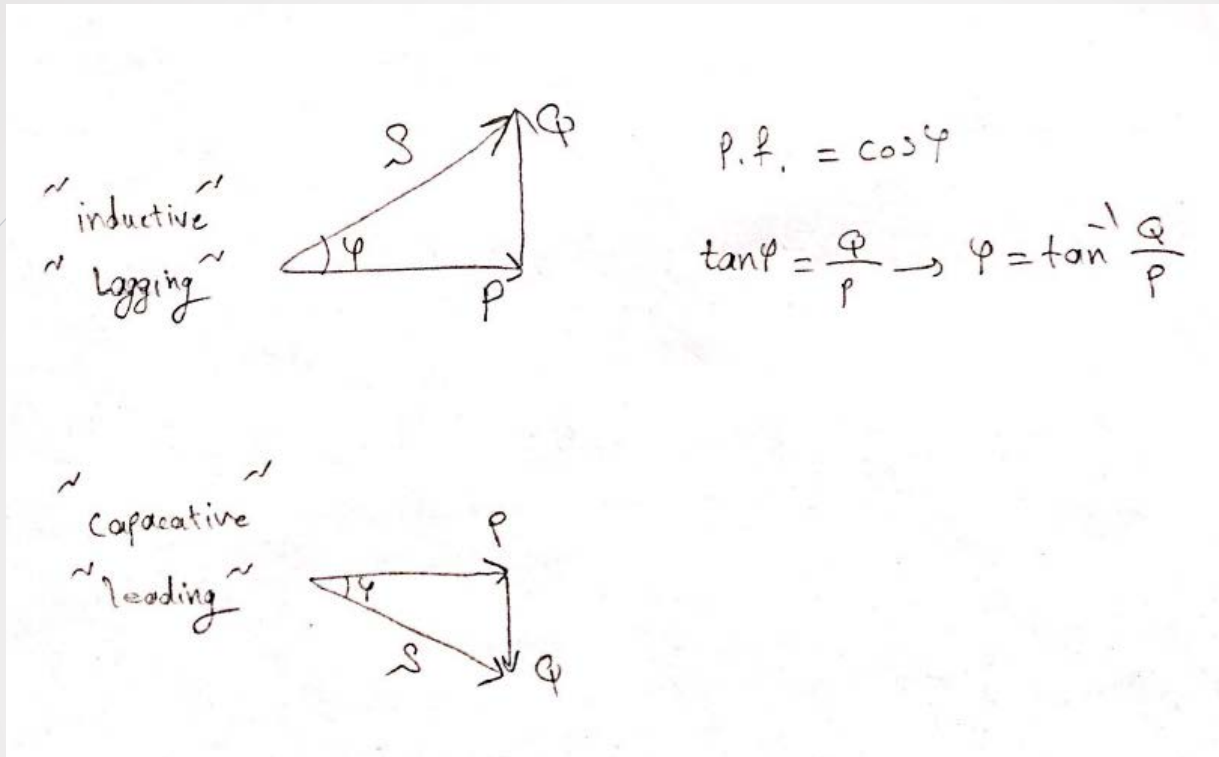 S
Q
"inductive"
"Lagging"
φ
P
P.f. = cosφ
tanφ = Q/P → φ = tan⁻¹ Q/P
"Capacative"
"leading"
P
φ
S
Q